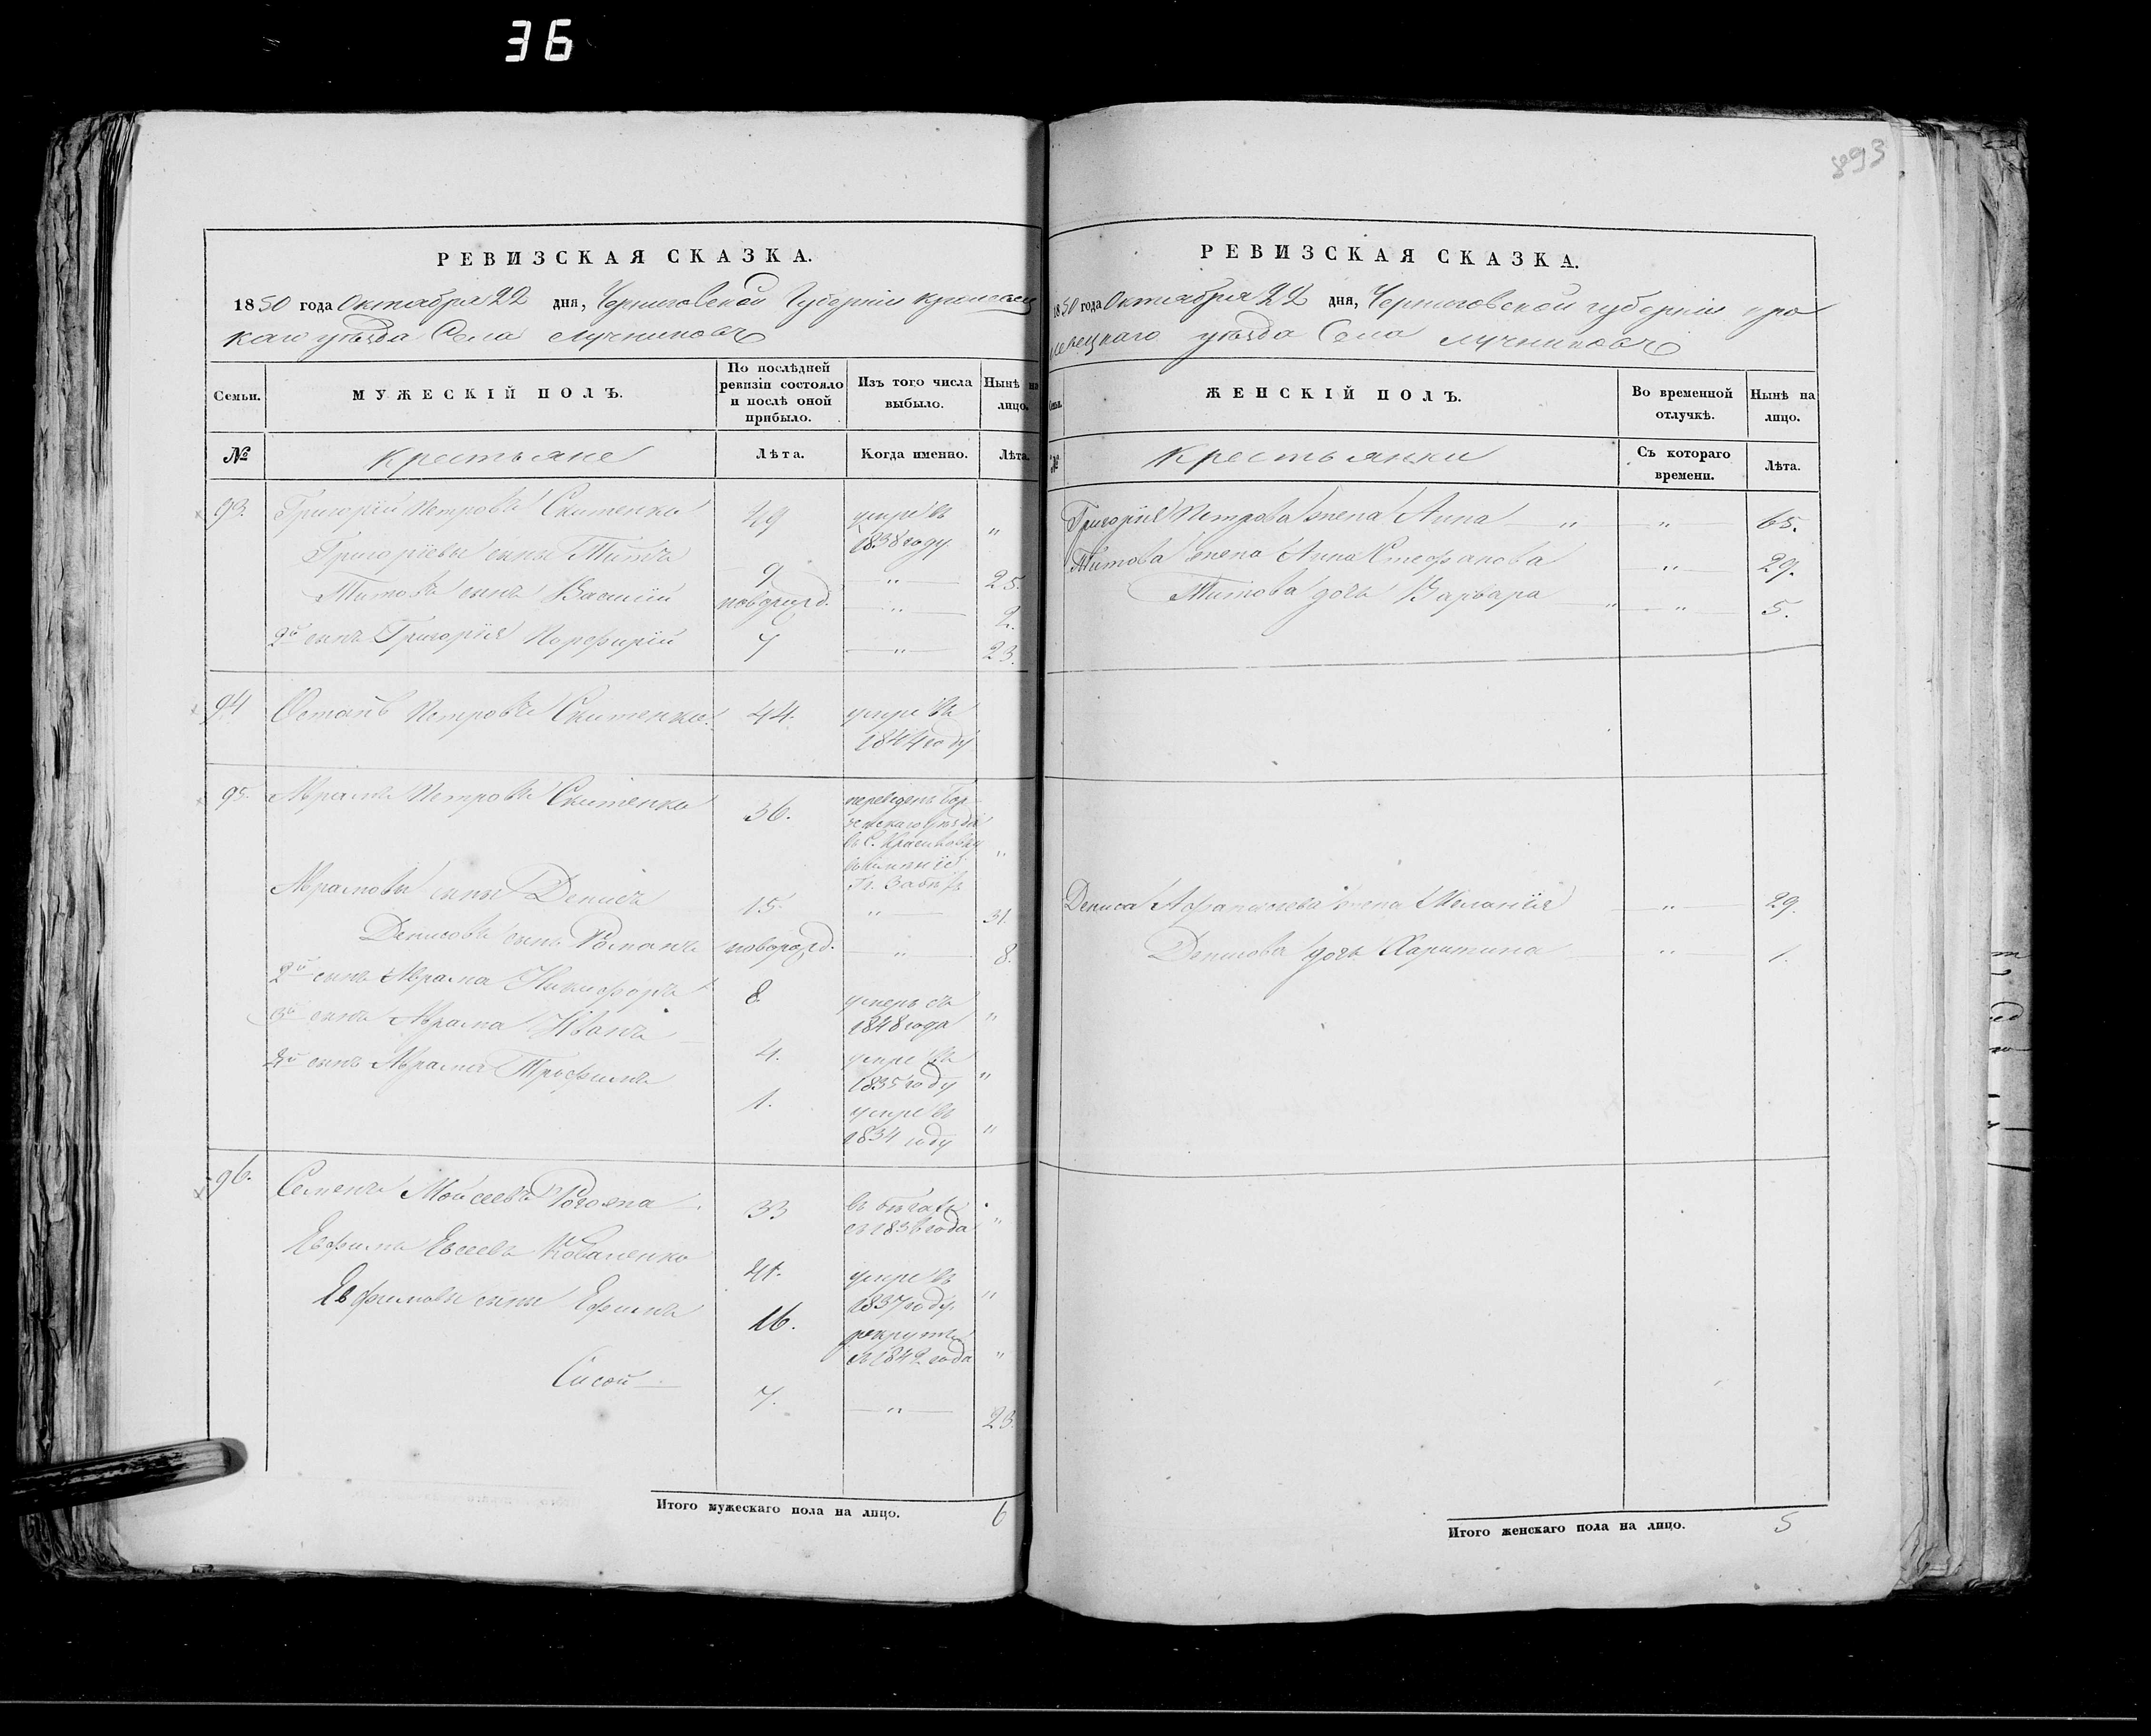 36
893
РЕВИЗСКАЯ СКАЗКА.
1850 года Октября 22 дня, Черниговской Губернии
каго уѣзда Села Лучниковъ
Семьи.
МУЖЕСКІЙ ПОЛЪ.
По послѣдней ревизіи состояло и послѣ оной прибыло.
Изъ того числа выбыло.
Нынѣ на лицо.
№
Крестьяне
Лѣта.
Когда именно.
Лѣта.
93. Григорій Петровъ Скитенко 49 умре въ 1838 году "
Григоріевы сыны Титъ 9 " 25.
Титовъ сынъ Василій новорожд. " 2.
2й сынъ Григорія Порфирій 7 " 23.
94 Остапъ Петровъ Скитенко. 44. умре въ 1844 году
95. Абрамъ Петровъ Скитенко 36. переведенъ Бор
зенскаго уѣзда
въ С.
въ имѣніе
Г. "
Абрамовы сыны Денисъ 15. " 31.
Денисовъ сынъ Романъ новорожд. " 8.
2й сынъ Абрама Никифоръ 8 умеръ съ 1848 года "
3й сынъ Абрама Иванъ 4. умре въ 1835 году "
4й сынъ Абрама Трофимъ 1. умре въ 1834 году "
96. Семенъ Мойсеевъ 33 въ бѣгахъ съ 1836 года "
Евфимъ Евсеевъ Коваленко 41. умре въ 1837 году. "
Евфимовы сыны Ефимъ 16. рекрутъ съ 1842 года "
Сисой 7. " 23.
Итого мужескаго пола на лицо. 6
РЕВИЗСКАЯ СКАЗКА.
1850 года Октября 22 дня, Черниговской губерніи кро
левецкаго уѣзда Села Лучниковъ
Семьи.
ЖЕНСКІЙ ПОЛЪ.
Во временной отлучкѣ.
Нынѣ на лицо.
№
Крестьянки
Съ котораго времени.
Лѣта.
Григорія Петрова жена Анна " " 65.
Титова жена Анна Стефанова " 29.
Титова дочь Варвара " " 5.
Дениса жена Меланія " 29.
Денисова дочь Харитина " 1.
Итого женскаго пола на лицо. 5